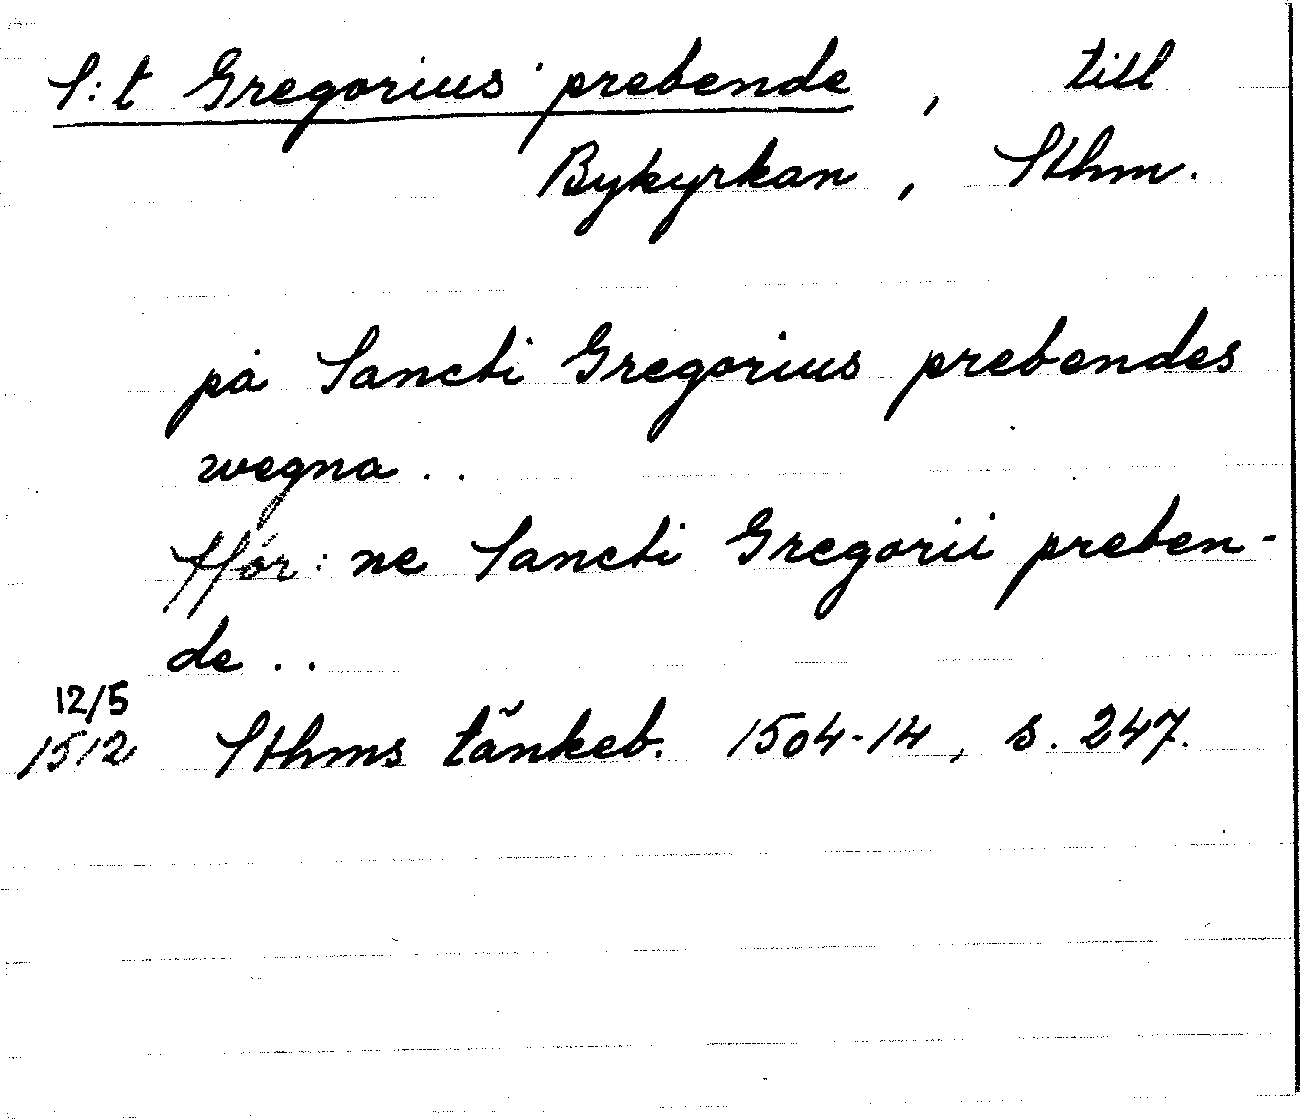 S:t Gregorius' prebende, till
Bykyrkan, Sthm.
på Sancti Gregorius prebendes
wegna..
ffór:ne Sancti Gregorii preben-
de..
12/5
1512 Sthms tänkeb. 1504-14, s. 247.